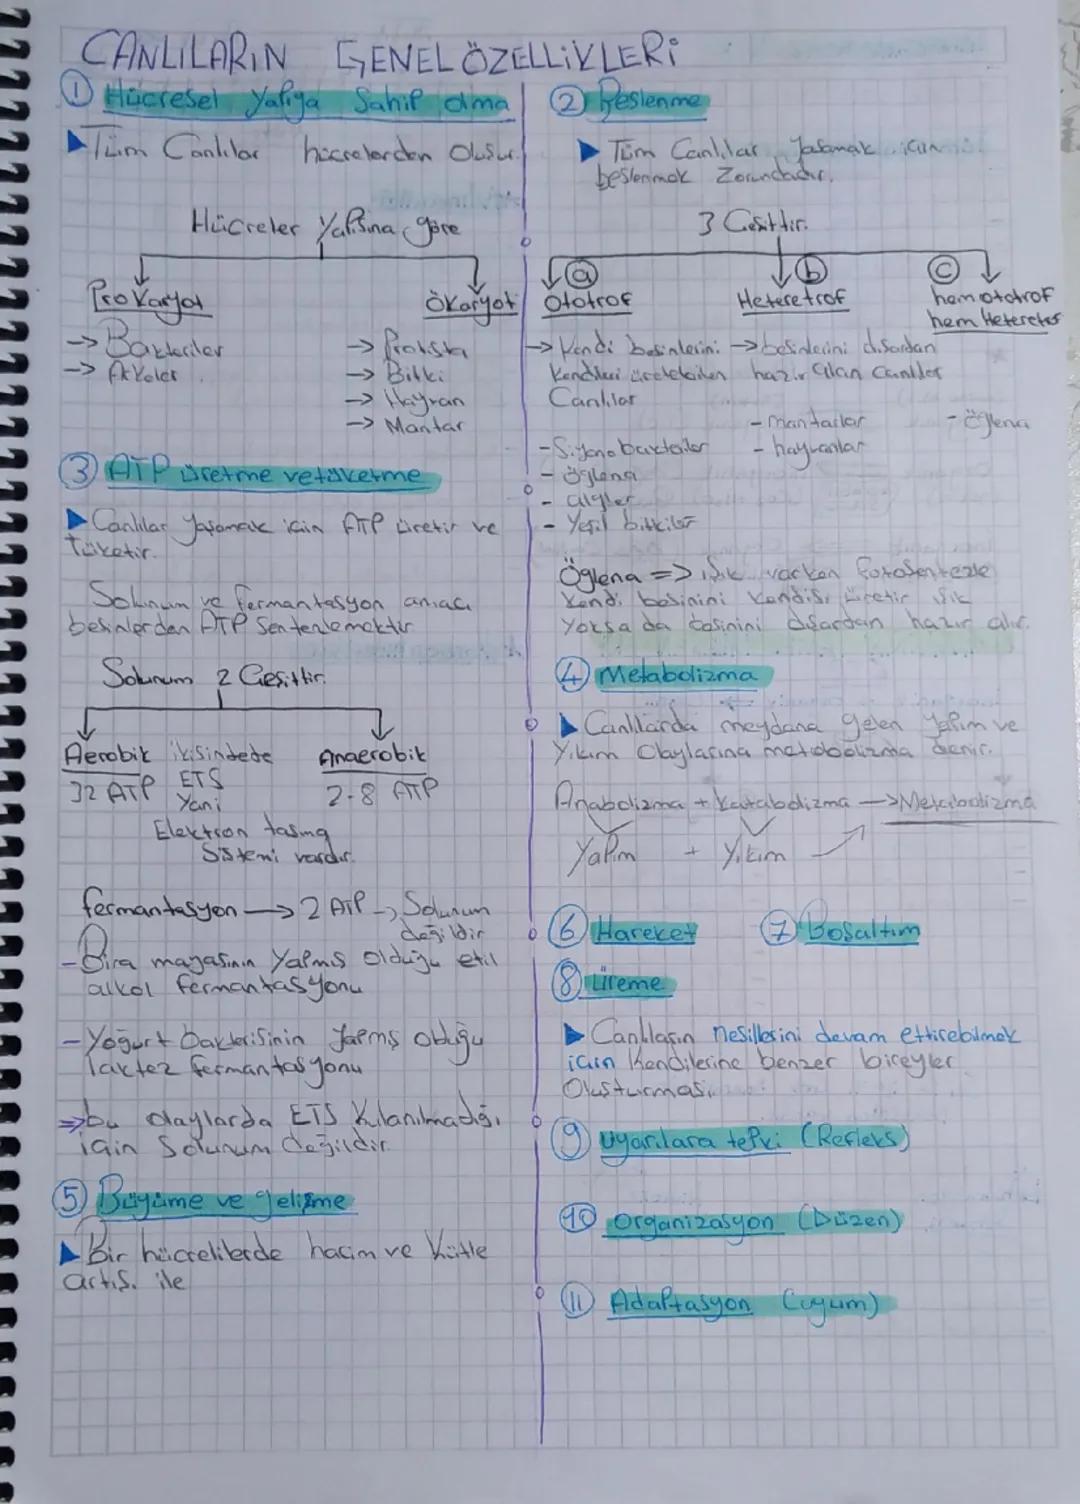 CANLILARIN GENEL ÖZELLİKLERİ
① Hücresel Yapıya Sahip olma
▶ Tüm Canlılar hücrelerden Oluşur.
Hücreler Yapısına göre
Prokaryot
→ Bakteriler
→ Arkeler
Ökaryot
→ Protista
→ Bitki
→ Hayvan
→ Mantar
③ ATP üretme ve tüketme
▶ Canlılar Yaşamak için ATP üretir ve
Tüketir.
Solunum ve fermantasyon amacı
besinlerden ATP Sentezlemektir
Solunum 2 Çeşittir.
Aerobik
32 ATP
ikisindede
ETS
Yani
Elektron taşıma
Sistemi vardır.
Anaerobik
2-8 ATP
fermantasyon → 2 ATP → Solunum
değildir
- Bira mayasının Yapmış Olduğu etil
alkol fermantasyonu
- Yoğurt bakterisinin Yapmış olduğu
laktez fermantasyonu
⇒ bu olaylarda ETS Kulanılmadığı
için Solunum değildir.
⑤ Büyüme ve gelişme
▶ Bir hücrelilerde hacim ve Kütle
artışı ile
② Beslenme
▶ Tüm Canlılar Yaşamak için
beslenmek Zorundadır.
3 Çeşittir.
ⓐ
Ototrof
→ Kendi besinlerini
Kendileri üretebilen
Canlılar
- Siyanobakteriler
- öğlena
- algler
- Yeşil bitkiler
ⓑ
Heteretrof
→ besinlerini dışardan
hazır alan canlılar
- mantarlar
- hayvanlar
ⓒ
hem ototrof
hem Heteretrof
- öğlena
Öğlena => ışık varken fotosentezle
Kendi besinini Kendisi üretir ışık
Yoksa da besinini dışardan hazır alır.
④ Metabolizma
▶ Canlılarda meydana gelen Yapım ve
Yıkım Olaylarına metabolizma denir.
Anabolizma + Katabolizma → Metabolizma
Yapım + Yıkım
⑥ Hareket ⑦ Boşaltım
⑧ üreme
▶ Canlıların nesillerini devam ettirebilmek
için Kendilerine benzer bireyler
Oluşturması.
⑨ Uyarılara tepki (Refleks)
⑩ Organizasyon (Düzen)
⑪ Adaptasyon (uyum)